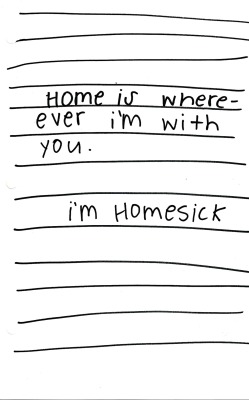 Home is where-
ever i'm with
you.
i'm Homesick